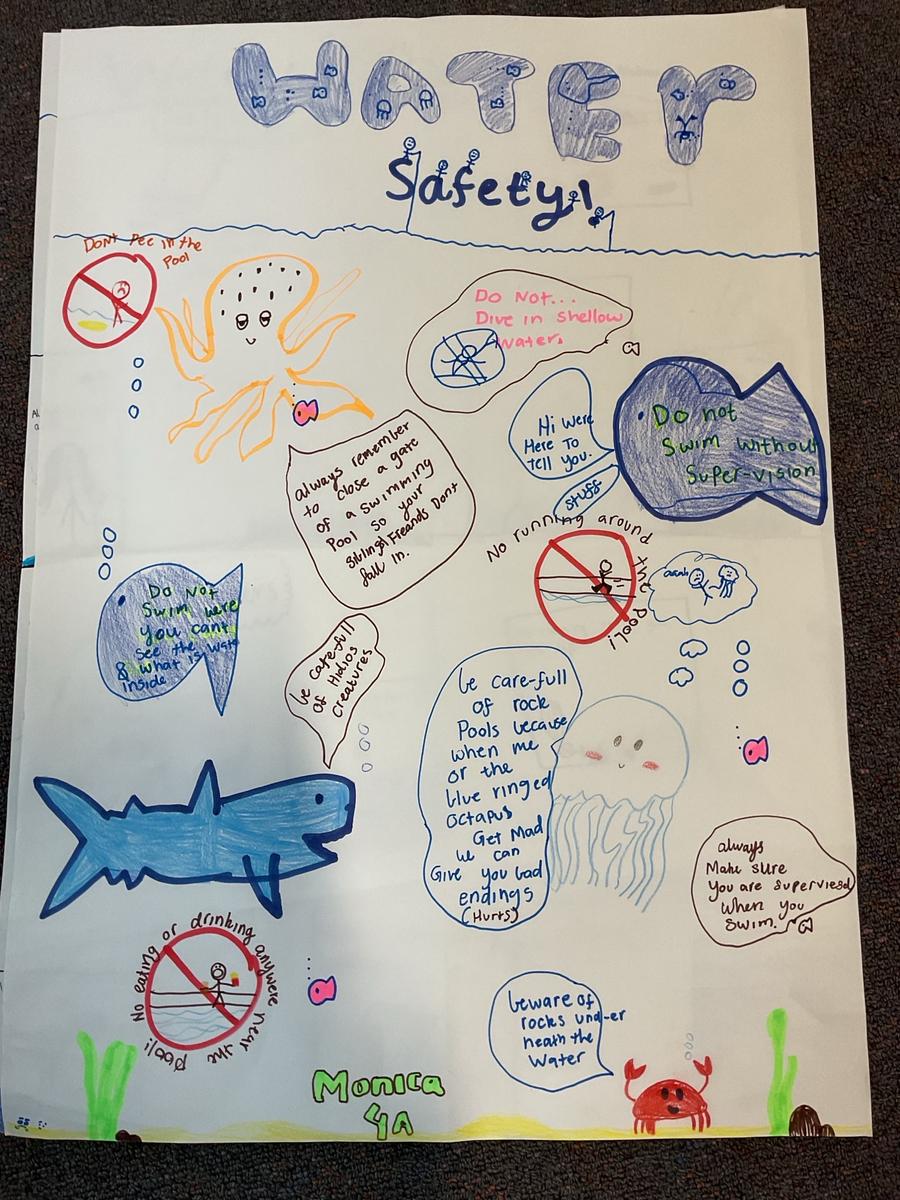 WATEr
Safety!
Dont Pee in the
Pool
Do Not...
Dive in shellow
water.
Hi were
Here To
tell you.
stuff
Do not
Swim without
Super-vision
always remember
to close a gate
of a swimming
Pool so your
Siblings Freands Dont
fall in.
No running around the pool!
aaah
Do Not
Swim were
you cant
see the
& what is
inside
be care-full
of Hidios
creatures
be care-full
of rock
Pools because
when me
or the
blue ringed
octapus
Get Mad
we can
Give you bad
endings
(Hurts)
always
Make sure
you are superviesd
When you
Swim.
No eating or drinking anywere near the pool!
beware of
rocks und-er
neath the
Water
Monica
4A